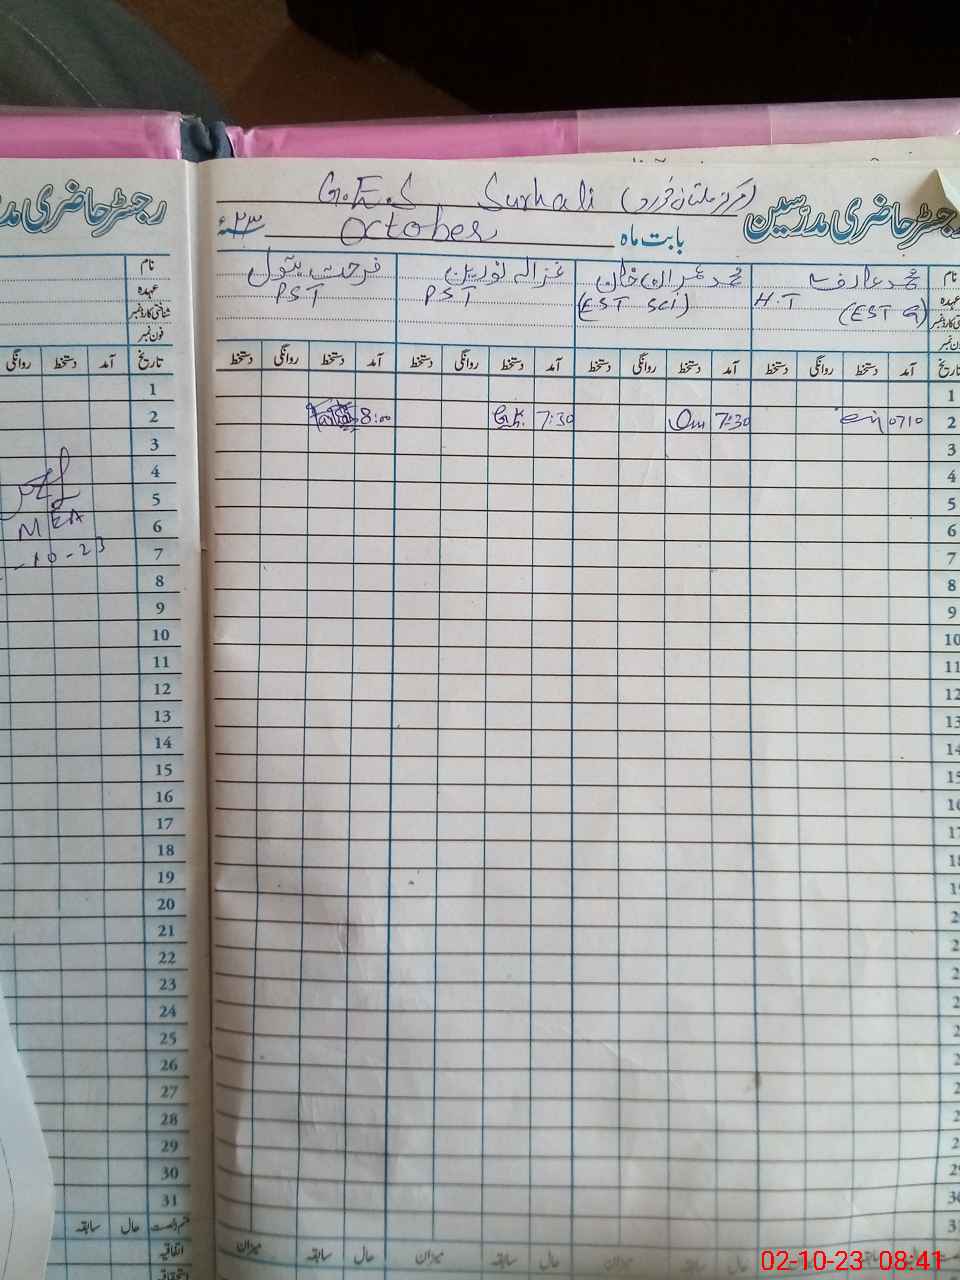 G.E.S Surhali (مرکز ملتان خورد)
رجسٹر حاضری مدرسین
بابت ماہ October ۲۰۲۳ء
نام محمد عارف غزالہ نورین فرحت بتول
عہدہ H.T (EST G) (EST SCI) PST PST
شناختی کارڈ نمبر
فون نمبر
تاریخ آمد دستخط روانگی دستخط آمد دستخط روانگی دستخط آمد دستخط روانگی دستخط آمد دستخط روانگی دستخط
1
2 0710 7:30 7:30 G.k. 8:00
3
4
5
6
7
8
9
10
11
12
13
14
15
16
17
18
19
رجسٹر حاضری مد
نام
عہدہ
شناختی کارڈ نمبر
فون نمبر
تاریخ آمد دستخط روانگی
1
2
3
4
5
6 MEA
7 -10-23
8
9
10
11
12
13
14
15
16
17
18
19
20
21
22
23
24
25
26
27
28
29
30
31
حال سابقہ
اتفاقیہ
حال سابقہ میزان حال سابقہ میزان
02-10-23 08:41